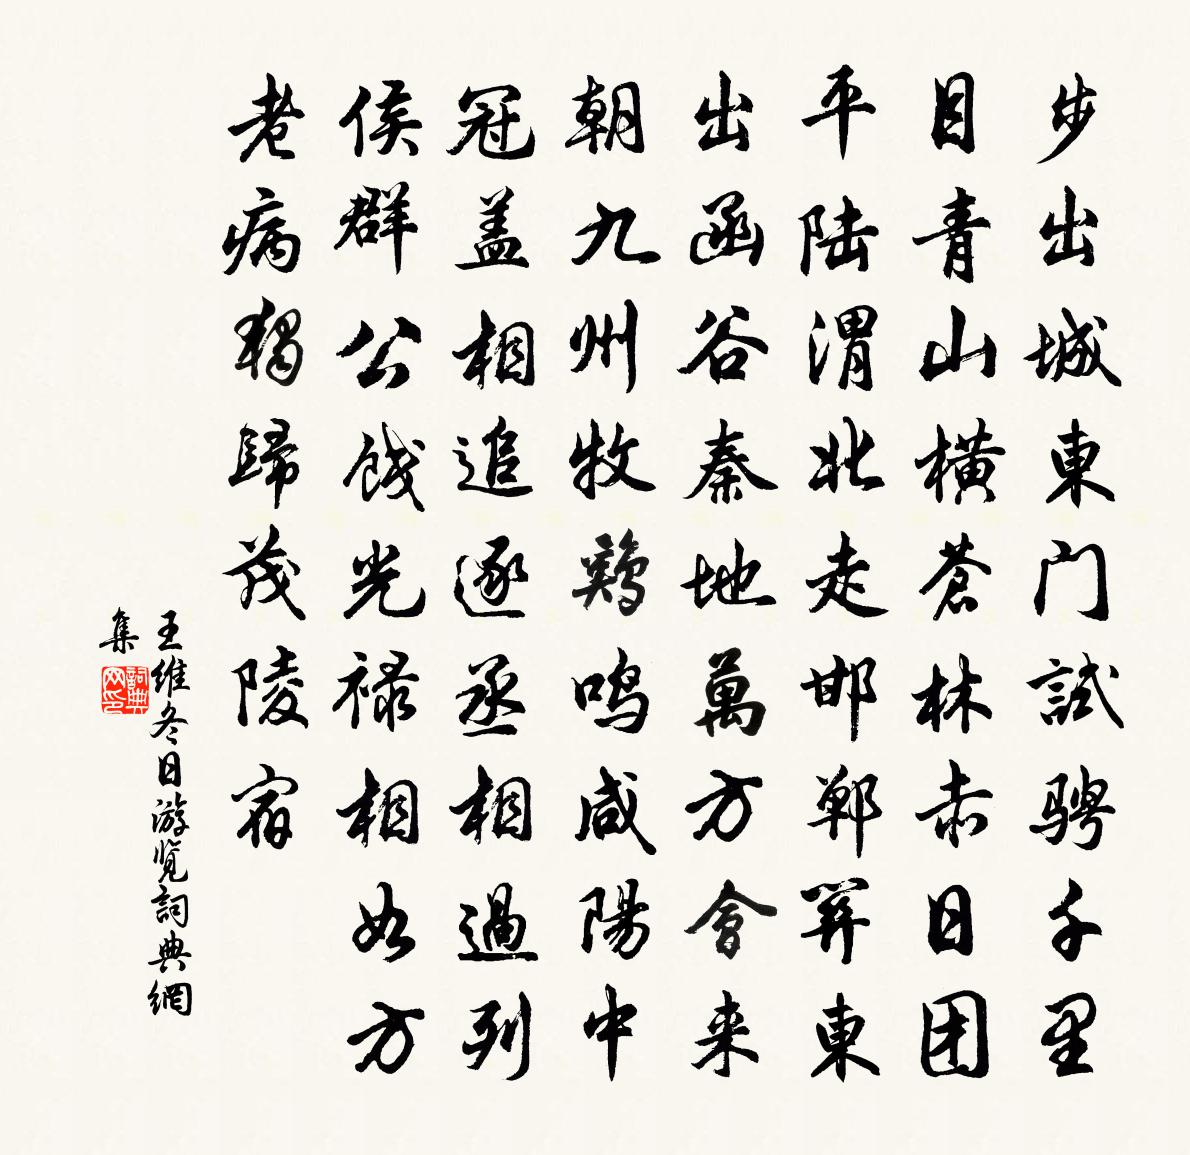 步出城東门試骋千里
目青山横蒼林赤日团
平陆渭北走邯郸関東
出函谷秦地萬方會来
朝九州牧鷄鸣咸陽中
冠盖相追逐丞相過列
侯群公饯光禄相如方
老病獨歸茂陵宿
王維冬日游览詞典網
集
詞典網印